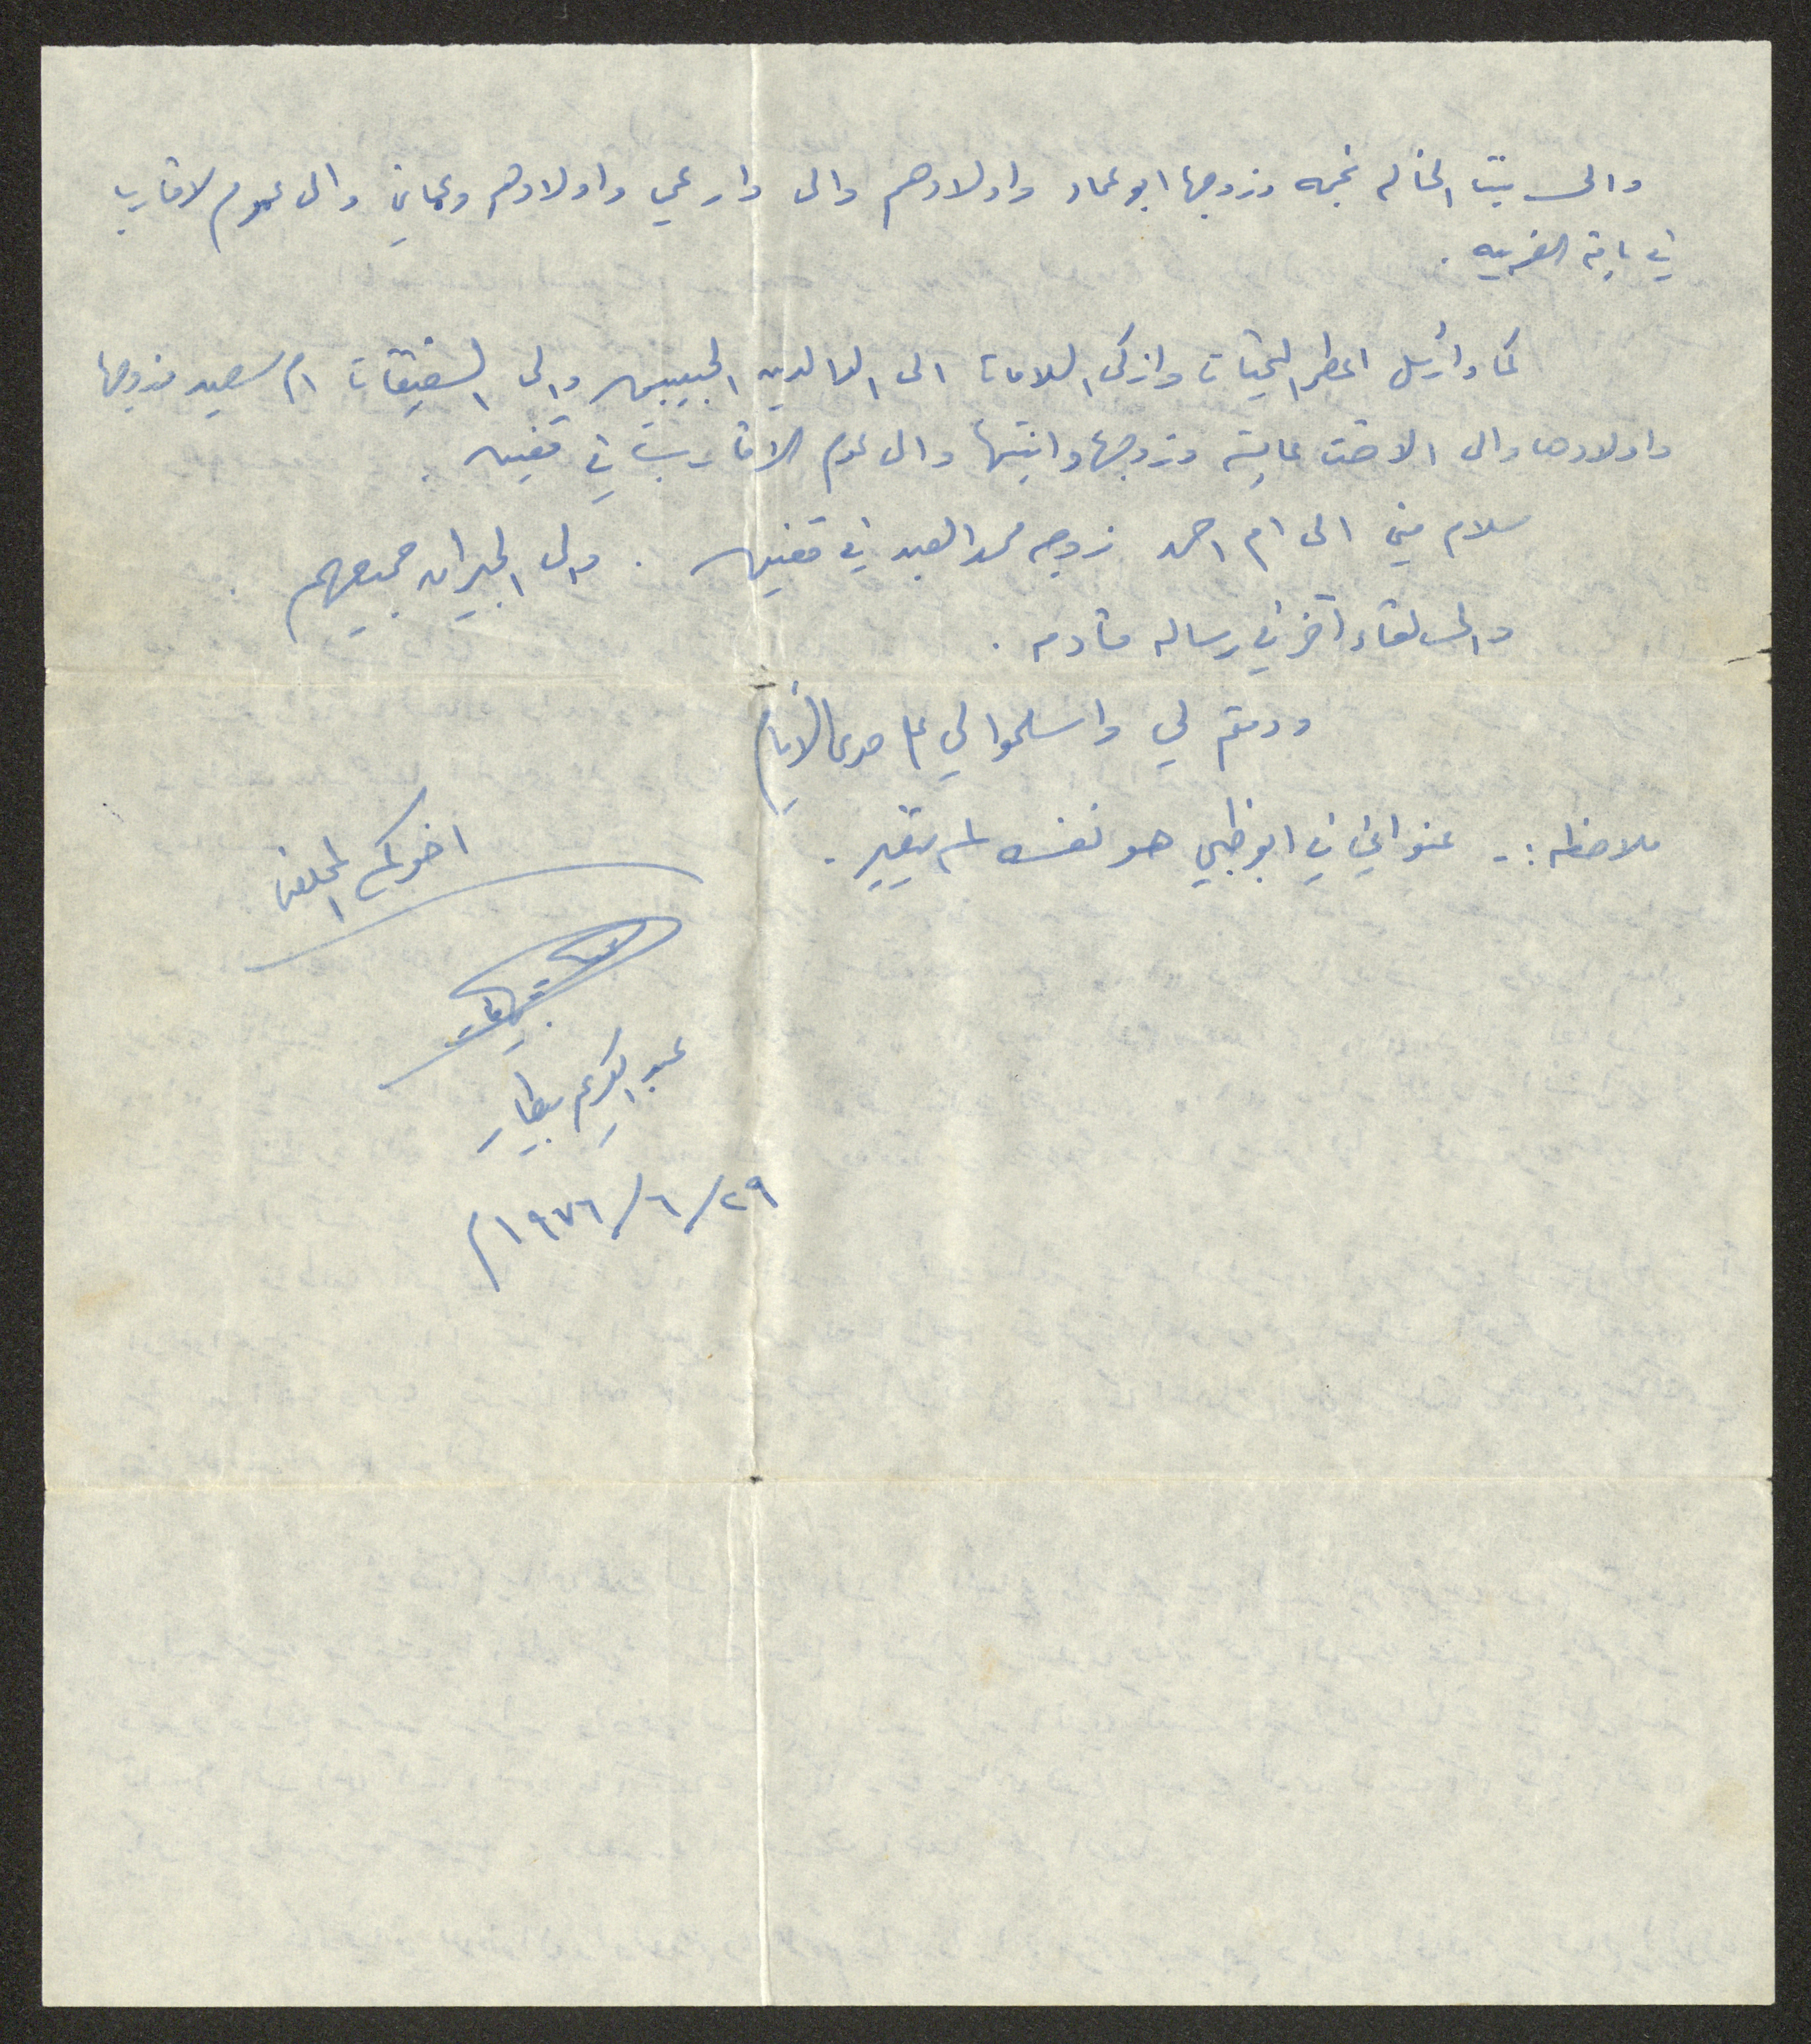 والى بيت الخاله نجمه وزوجها ابو عماد واولادهم والى دار عمي واولادهم وعماتي والى عموم الاقارب
في باقة الغربيه .
كما وارسل اعطر التحيات وازكى السلامات الى الوالدين الحبيبين والى الشقيقات ام سعيد وزوجها
واولادها والى الاخت عايشه وزوجها وابنتها والى عموم الاقارب في قفين .
سلام مني الى ام احمد زوجه محمد العبد في قفين . والى الجيران جميعهم .
والى لقاء آخر في رساله قادمه .
ودمتم لي واسلموا لي على مدى الأيام
ملاحظه :- عنواني في ابو ظبي هو نفسه لم يتغير .
اخوكم المخلص
عبد الكريم بيطار
٢٩/٦/١٩٧٦م